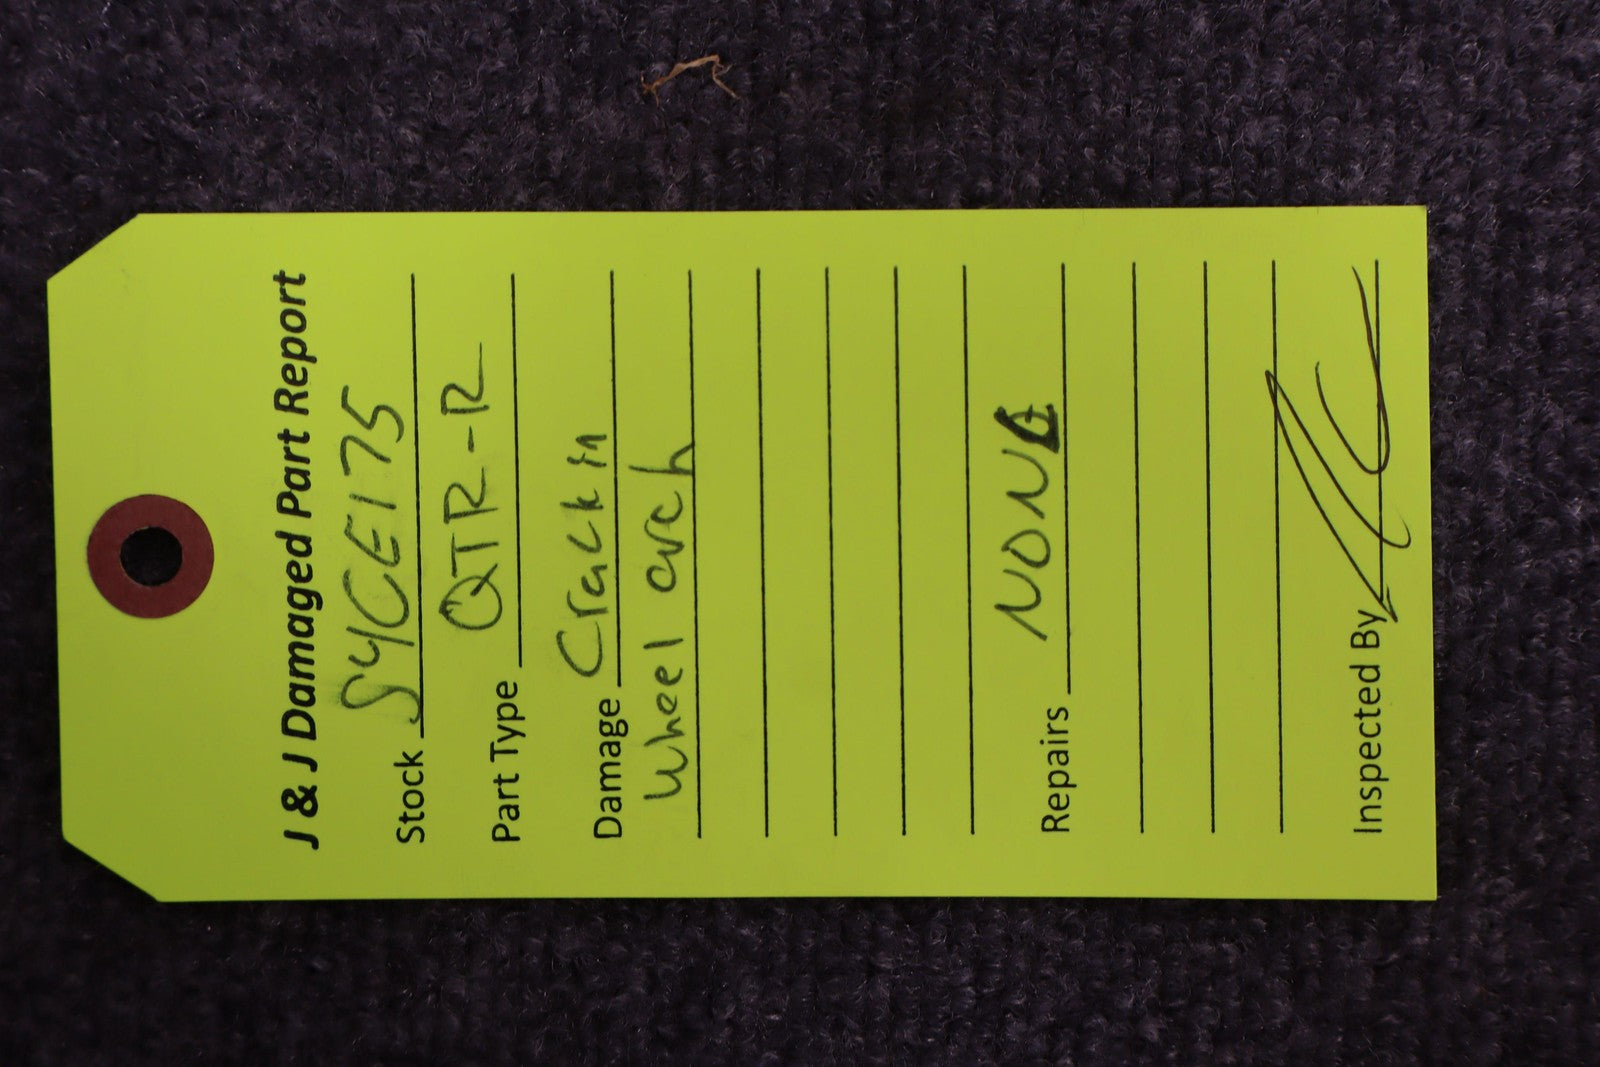 J & J Damaged Part Report
Stock S4CE175
Part Type QTR-R
Damage Crack in
Wheel arch
Repairs NONE
Inspected By